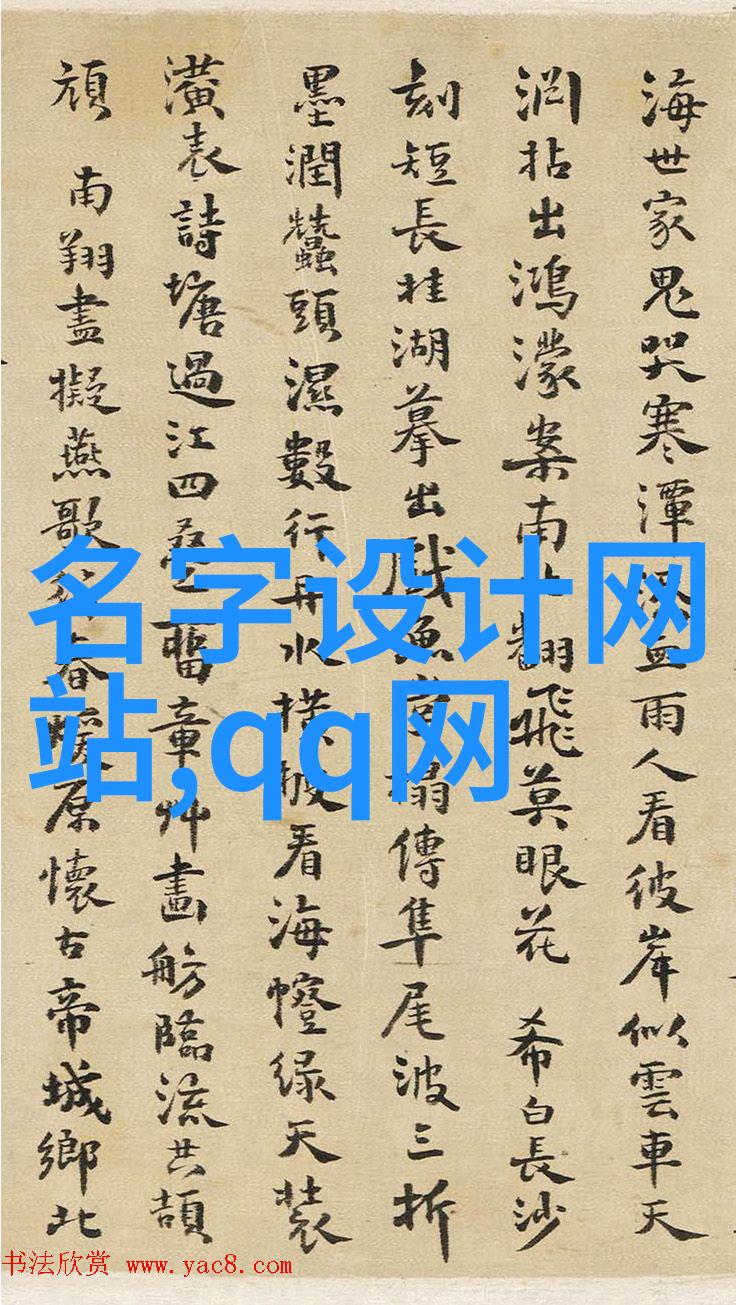 海世家鬼哭寒潭血雨人看彼岸似雲車天
拈出鴻濛案南翻飛莫眼花 希白長沙
刻短長桂湖摹出戲魚堂榻傳隼尾波三折
墨潤蠶頭濕數行再水橫披看海幢綠天裝
潢表詩塘過江四疊留章艸畫舫臨流共頡
頏 南翔盡擬燕歌行春暖原懷古帝城鄉北
名字设计网
站,qq网
书法欣赏 www.yac8.com